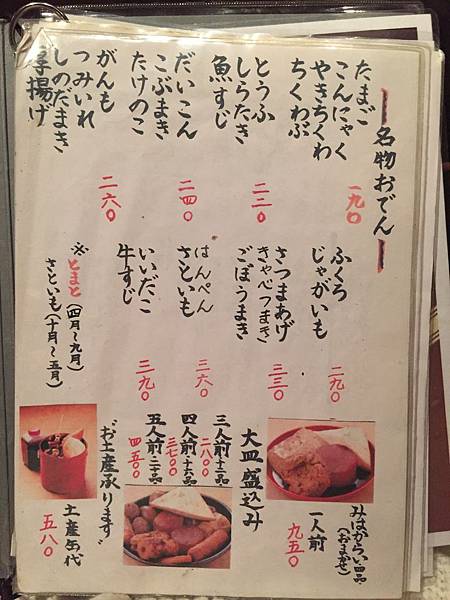 名物おでん
たまご
こんにゃく
やきちくわ
ちくわぶ
一九〇
とうふ
しらたき
魚すじ
二二〇
だいこん
こぶまき
たけのこ
二四〇
がんも
つみいれ
しのだまき
厚揚げ
二六〇
ふくろ
じゃがいも
二九〇
さつまあげ
きゃべつまき
ごぼうまき
三三〇
はんぺん
さといも
三六〇
いいだこ
牛すじ
三九〇
※とまと(四月〜九月)
さといも(十月〜五月)
みはからい四品
(おまかせ)
一人前
九五〇
大皿盛込み
三人前・十二品
二八〇〇
四人前・十六品
三七〇〇
五人前・二十品
四五〇〇
"お土産承ります"
土産缶代
五八〇